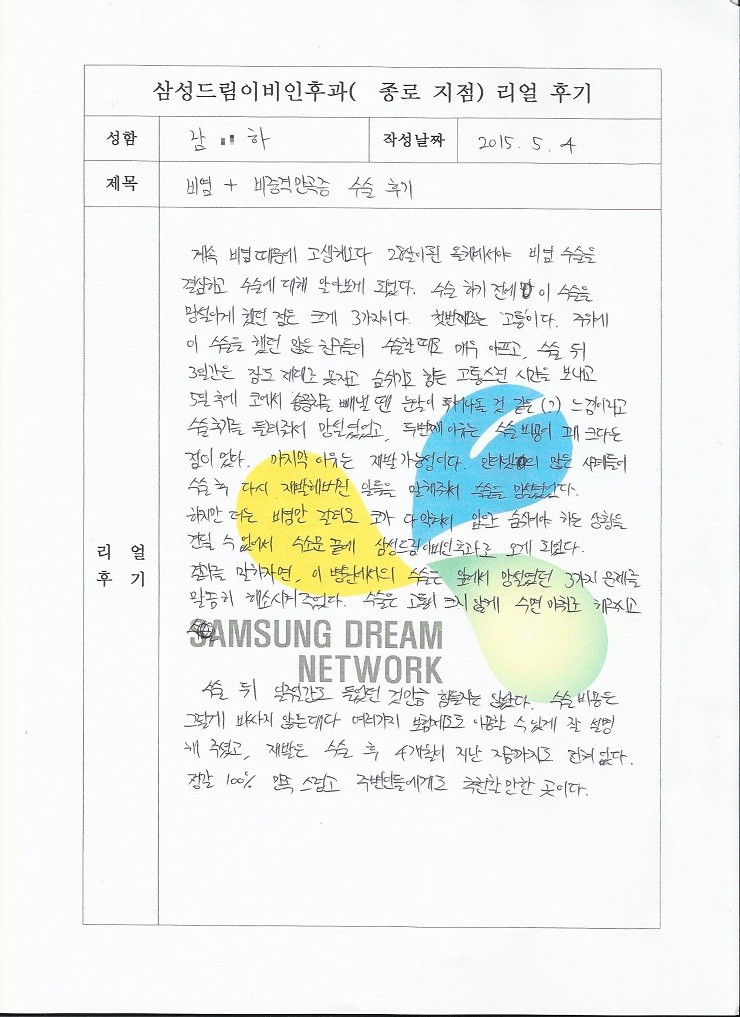 삼성드림이비인후과( 종로 지점) 리얼 후기
성함 남 하 작성날짜 2015. 5. 4
제목 비염 + 비중격만곡증 수술 후기
리 얼
후 기
계속 비염때문에 고생해오다 28살이 된 올해에서야 비염 수술을
결심하고 수술에 대해 알아보게 되었다. 수술 하기 전에 이 수술을
망설이게 했던 점은 크게 3가지이다. 첫번째로는 고통이다. 주위에
이 수술을 했던 많은 친구들이 수술할 때도 매우 아프고, 수술 뒤
3일간은 잠도 제대로 못자고 숨쉬기도 힘든 고통스런 시간을 보내고
5일 후에 코에서 솜뭉치를 빼낼 땐 눈알이 튀어나올 것 같은 (?) 느낌이라고
수술후기를 들려줘서 망설였었고, 두번째 이유는 수술 비용이 꽤 크다는
점이 었다. 마지막 이유는 재발 가능성이다. 인터넷의 많은 사례들이
수술 후 다시 재발해버린 일들을 말해줘서 수술을 망설였었다.
하지만 더는 비염만 걸려도 코가 다 막혀서 입만 숨쉬어야 하는 상황을
견딜 수 없어서 수소문 끝에 삼성드림이비인후과로 오게 되었다.
결과를 말하자면, 이 병원에서의 수술은 앞에서 망설였던 3가지 문제를
말끔히 해소시켜 주었다. 수술은 고통이 크지 않게 수면 마취로 해주시고
SAMSUNG DREAM
NETWORK
수술 뒤 일주일간도 들었던 것만큼 힘들지는 않았다. 수술비용은
그렇게 비싸지 않은데다 여러가지 보험제도도 이용할 수 있게 잘 설명
해 주셨고, 재발은 수술 후 4개월이 지난 지금까지도 전혀 없다.
정말 100% 만족 스럽고 주변인들에게도 추천할 만한 곳이다.